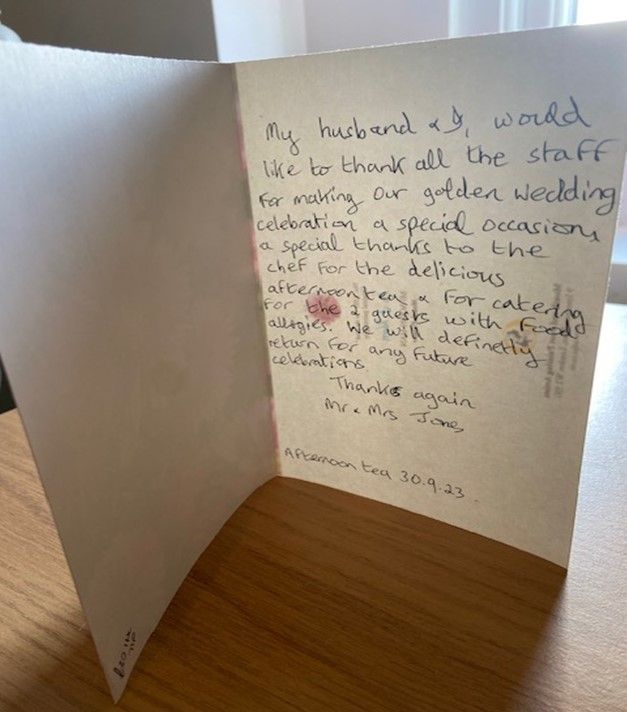 My husband & I, would
like to thank all the staff
for making our golden wedding
celebration a special occasion,
a special thanks to the
chef for the delicious
afternoon tea & for catering
for the 2 guests with food
allegies. We will definetly
return for any future
celebrations
Thanks again
Mr & Mrs Jones
Afternoon tea 30.9.23.